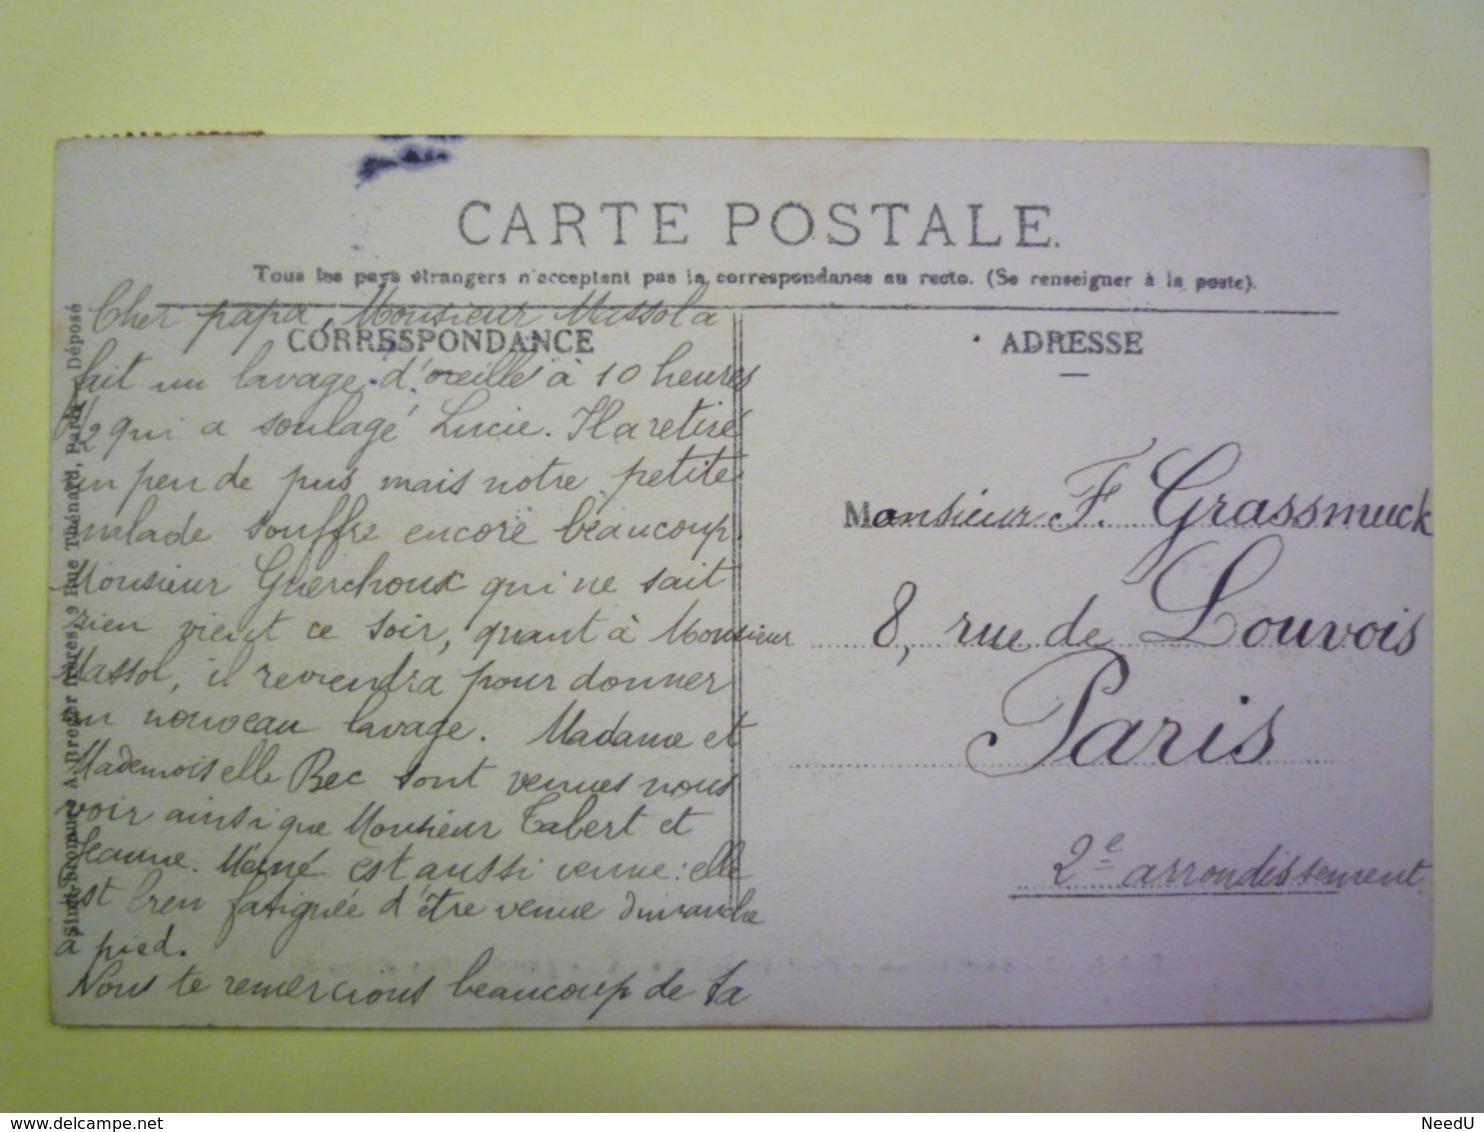 CARTE POSTALE.
Tous les pays étrangers n'acceptent pas la correspondance au recto. (Se renseigner à la poste).
CORRESPONDANCE
Cher papa, Monsieur Massol a
fait un lavage d'oreille à 10 heures
1/2 qui a soulagé Lucie. Il a retiré
un peu de pus mais notre petite
malade souffre encore beaucoup.
Monsieur Guerchoux qui ne sait
rien vient ce soir, quant à Monsieur
Massol, il reviendra pour donner
un nouveau lavage. Madame et
Mademoiselle Bec sont venues nous
voir ainsi que Monsieur Tabert et
Jeanne. Mémé est aussi venue : elle
est bien fatiguée d'être venue dimanche
à pied.
Nous te remercions beaucoup de ta
ADRESSE
Monsieur F. Grassmuck
8, rue de Louvois
Paris
2e arrondissement
A. Breger frères, 9 Rue Thénard, Paris - Déposé
NeedU